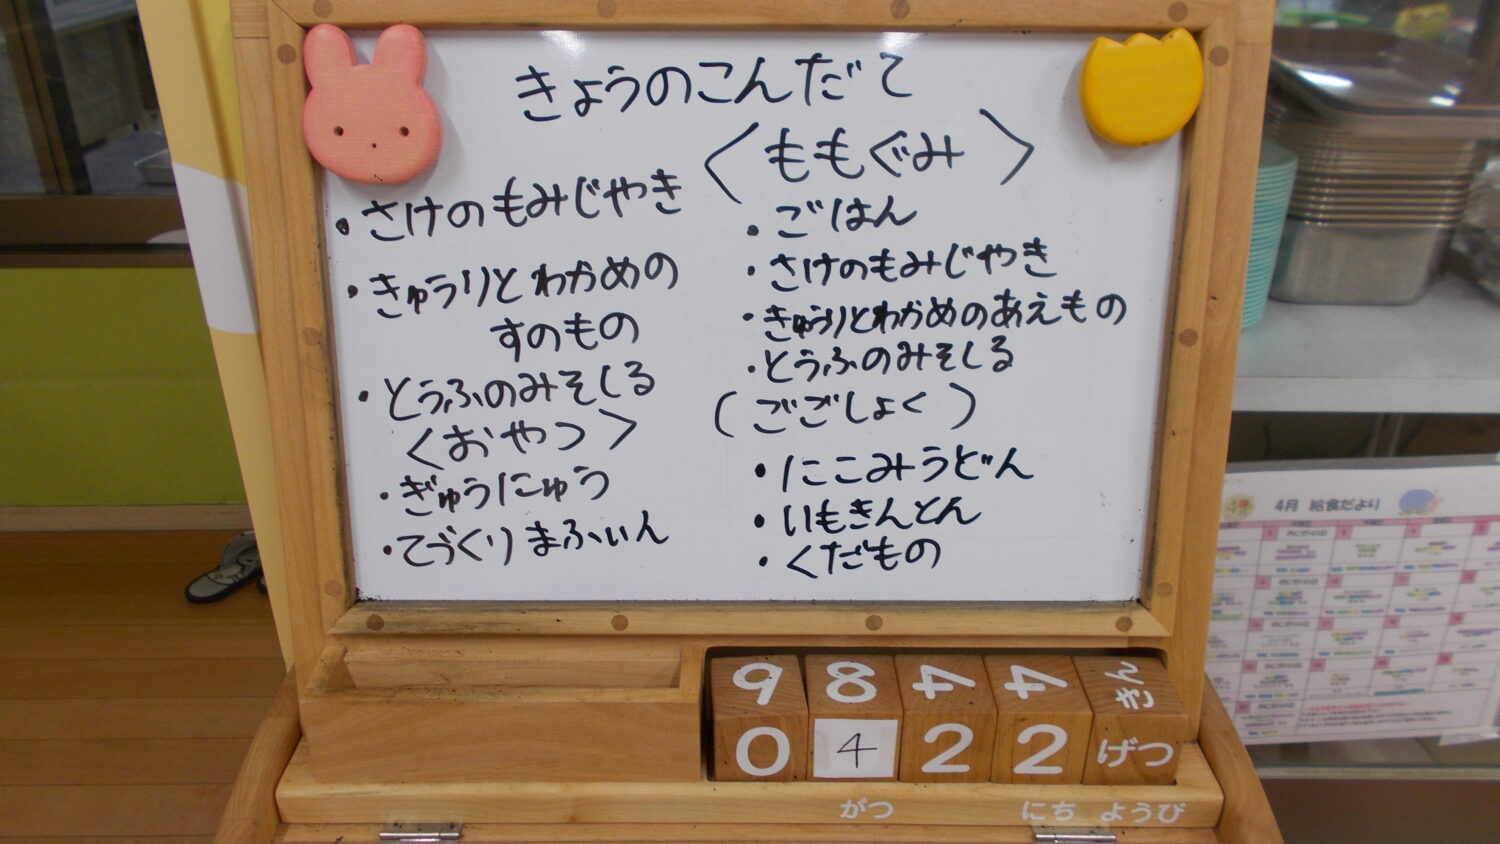 きょうのこんだて
・さけのもみじやき
・きゅうりとわかめの
すのもの
・とうふのみそしる
＜おやつ＞
・ぎゅうにゅう
・てづくりまふぃん
＜ももぐみ＞
・ごはん
・さけのもみじやき
・きゅうりとわかめのあえもの
・とうふのみそしる
（ごごしょく）
・にこみうどん
・いもきんとん
・くだもの
9 8 4 4 きん
0 4 2 2 げつ
がつ にち ようび
4月 給食だより